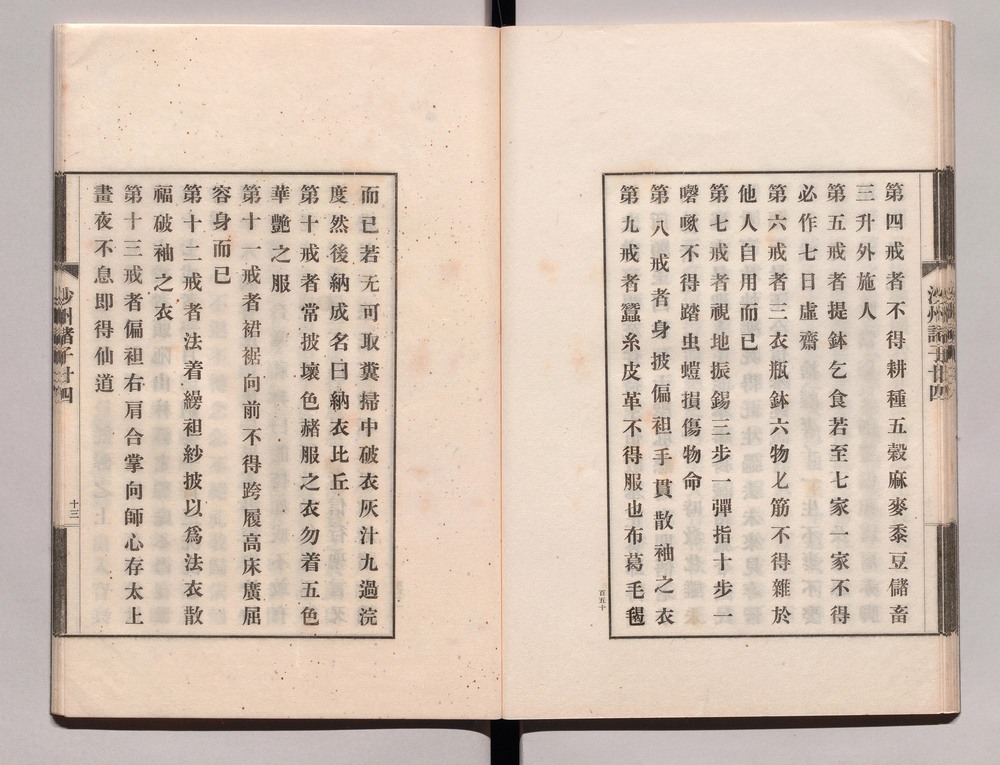 第四戒者不得耕種五穀麻麥黍豆儲畜
三升外施人
第五戒者提鉢乞食若至七家一家不得
必作七日虛齋
第六戒者三衣瓶鉢六物匕筋不得雜於
他人自用而已
第七戒者視地振錫三步一彈指十步一
謦嗽不得踏虫螘損傷物命
第八戒者身披偏袒手貫散袖之衣
第九戒者蠶糸皮革不得服也布葛毛毼
百五十
沙州諸子廿四
而已若无可取糞掃中破衣灰汁九過浣
度然後納成名曰納衣比丘
第十戒者常披壞色赭服之衣勿着五色
華艷之服
第十一戒者裙裾向前不得跨履高床廣屈
容身而已
第十二戒者法着繰袒紗披以爲法衣散
福破袖之衣
第十三戒者偏袒右肩合掌向師心存太上
晝夜不息即得仙道
沙州諸子廿四
十三